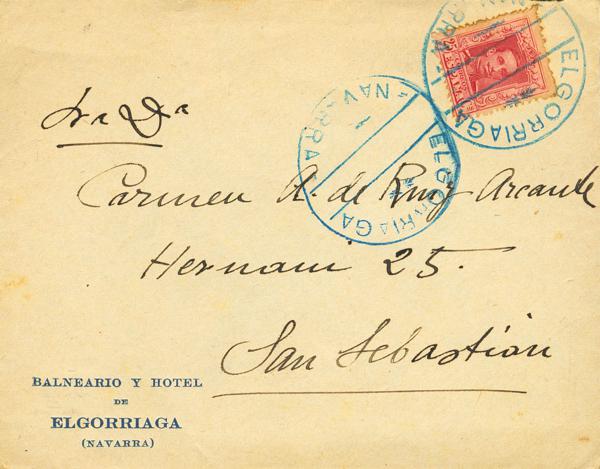 NAVARRA
ELGORRIAGA
NAVARRA
ELGORRIAGA
Sra Da
Carmen A. de Ruiz Arcaute
Hernani 25.
San Sebastián
BALNEARIO Y HOTEL
DE
ELGORRIAGA
(NAVARRA)